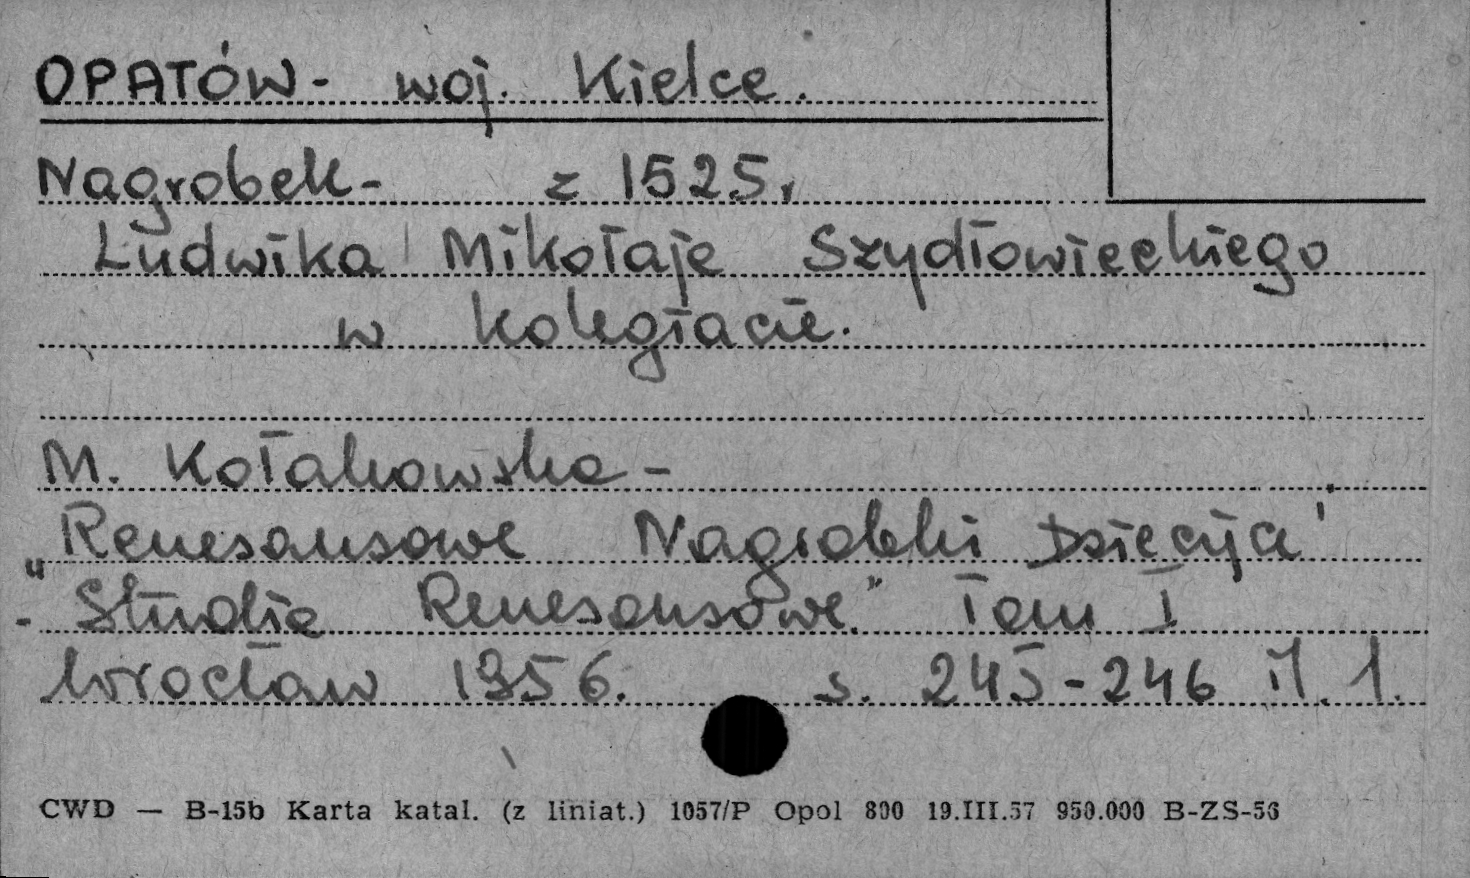 OPATÓW - woj. Kielce.
Nagrobek - z 1525,
Ludwika Mikołaja Szydłowieckiego
w kolegiacie.
M. Kołakowska -
Renesansowe Nagrobki Dziecięce
- "Studia Renesansowe." Tom I
Wrocław 1956. s. 245-246 il. 1.
CWD — B-15b Karta katal. (z liniat.) 1057/P Opol 800 19.III.57 950.000 B-ZS-56